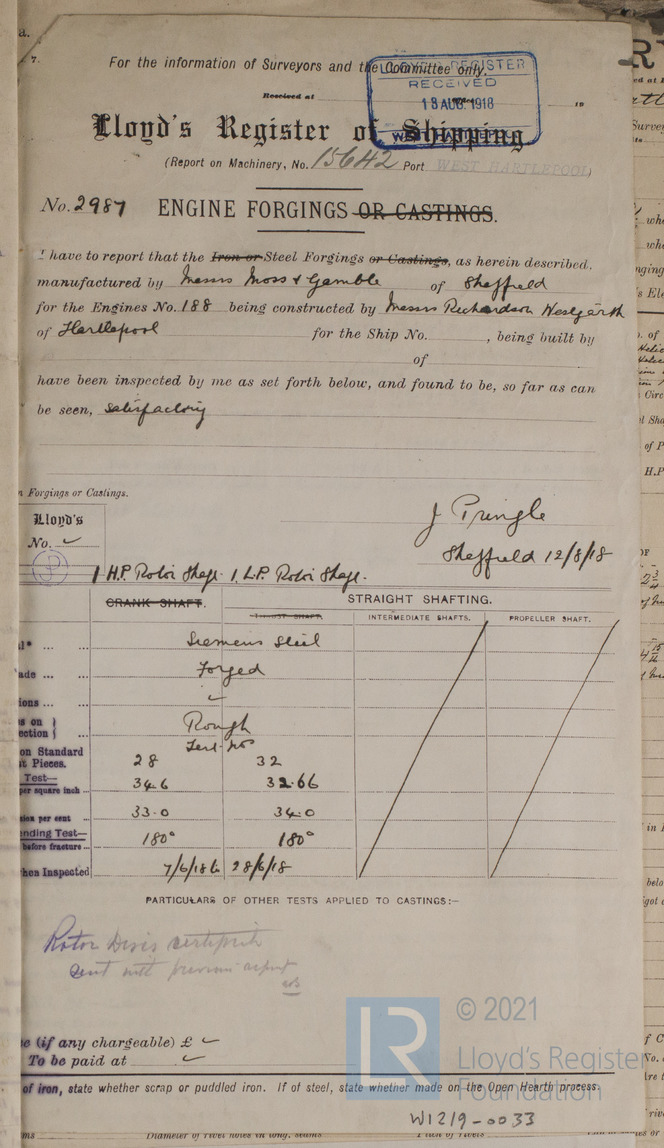 For the information of Surveyors and the Committee only.
LLOYD'S REGISTER
RECEIVED
18 AUG. 1918
WEST HARTLEPOOL
Received at 19
Lloyd's Register of Shipping
(Report on Machinery, No. 15642 Port WEST HARTLEPOOL)
No. 2987 ENGINE FORGINGS OR CASTINGS.
I have to report that the Iron or Steel Forgings or Castings, as herein described,
manufactured by Messrs Moss & Gamble of Sheffield
for the Engines No. 188 being constructed by Messrs Richardson Westgarth
of Hartlepool for the Ship No. , being built by
of
have been inspected by me as set forth below, and found to be, so far as can
be seen, satisfactory
Forgings or Castings.
J Pringle
Sheffield 12/8/18
Lloyd's
No.
1 H.P. Rotor Shaft. 1 L.P. Rotor Shaft.
CRANK SHAFT. STRAIGHT SHAFTING.
THRUST SHAFT. INTERMEDIATE SHAFTS. PROPELLER SHAFT.
Siemens Steel
ade ... Forged
ions ...
s on
ection Rough
Test Nos
on Standard
t Pieces. 28 32
Test—
per square inch 34.6 32.66
sion per cent 33.0 34.0
nding Test—
before fracture 180° 180°
hen Inspected 7/6/18 28/6/18
PARTICULARS OF OTHER TESTS APPLIED TO CASTINGS:—
Rotor Discs certificate
sent with previous report
e (if any chargeable) £
To be paid at
of iron, state whether scrap or puddled iron. If of steel, state whether made on the Open Hearth process.
LR
© 2021
Lloyd's Register
Foundation
W1219-0033